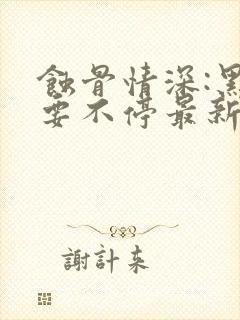 蝕骨情深:黑
要不停最新
謝計來